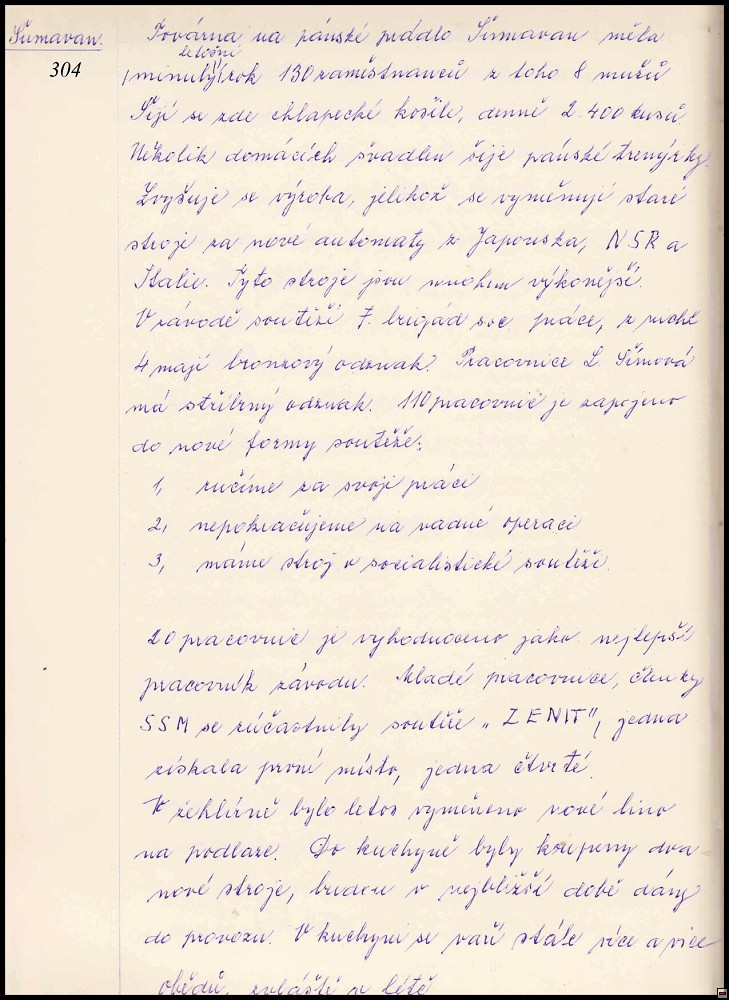 Šumavan.
304
Továrna na pánské prádlo Šumavan měla
letošní
/minulý/ rok 130 zaměstnanců z toho 8 mužů
Šijí se zde chlapecké košile, denně 2.400 kusů
Několik domácích švadlen šije pánské trenýrky.
Zvyšuje se výroba, jelikož se vyměňují staré
stroje za nové automaty z Japonska, NSR a
Italie. Tyto stroje jsou mnohem výkonější.
V závodě soutěží 7. brigád soc práce, z nichž
4 mají bronzový odznak. Pracovnice L. Šímová
má stříbrný odznak. 110 pracovnic je zapojeno
do nové formy soutěže:
1, ručíme za svoji práci
2, nepokračujeme na vadné operaci
3, máme stroj v socialistické soutěži.
20 pracovnic je vyhodnoceno jako nejlepší
pracovník závodu. Mladé pracovnice, členky
SSM se zúčastnily soutěže „ZENIT", jedna
získala první místo, jedna čtvrté.
V žehlírně bylo letos vyměněno nové lino
na podlaze. Do kuchyně byly koupeny dva
nové stroje, budou v nejbližší době dány
do provozu. V kuchyni se vaří stále více a více
obědů, zvláště v létě